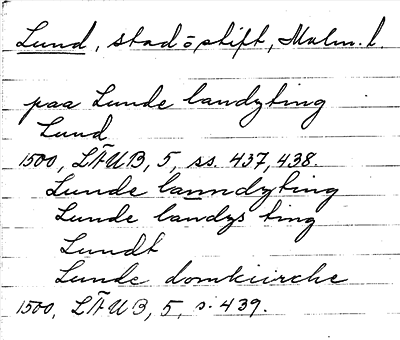 Lund, stad o. stift, Malm. l.
paa Lunde landzting
Lund
1500, LÄUB, 5, ss. 437, 438.
Lunde lanndzting
Lunde landzs ting
Lundt
Lunde domkiirche
1500, LÄUB, 5, s. 439.